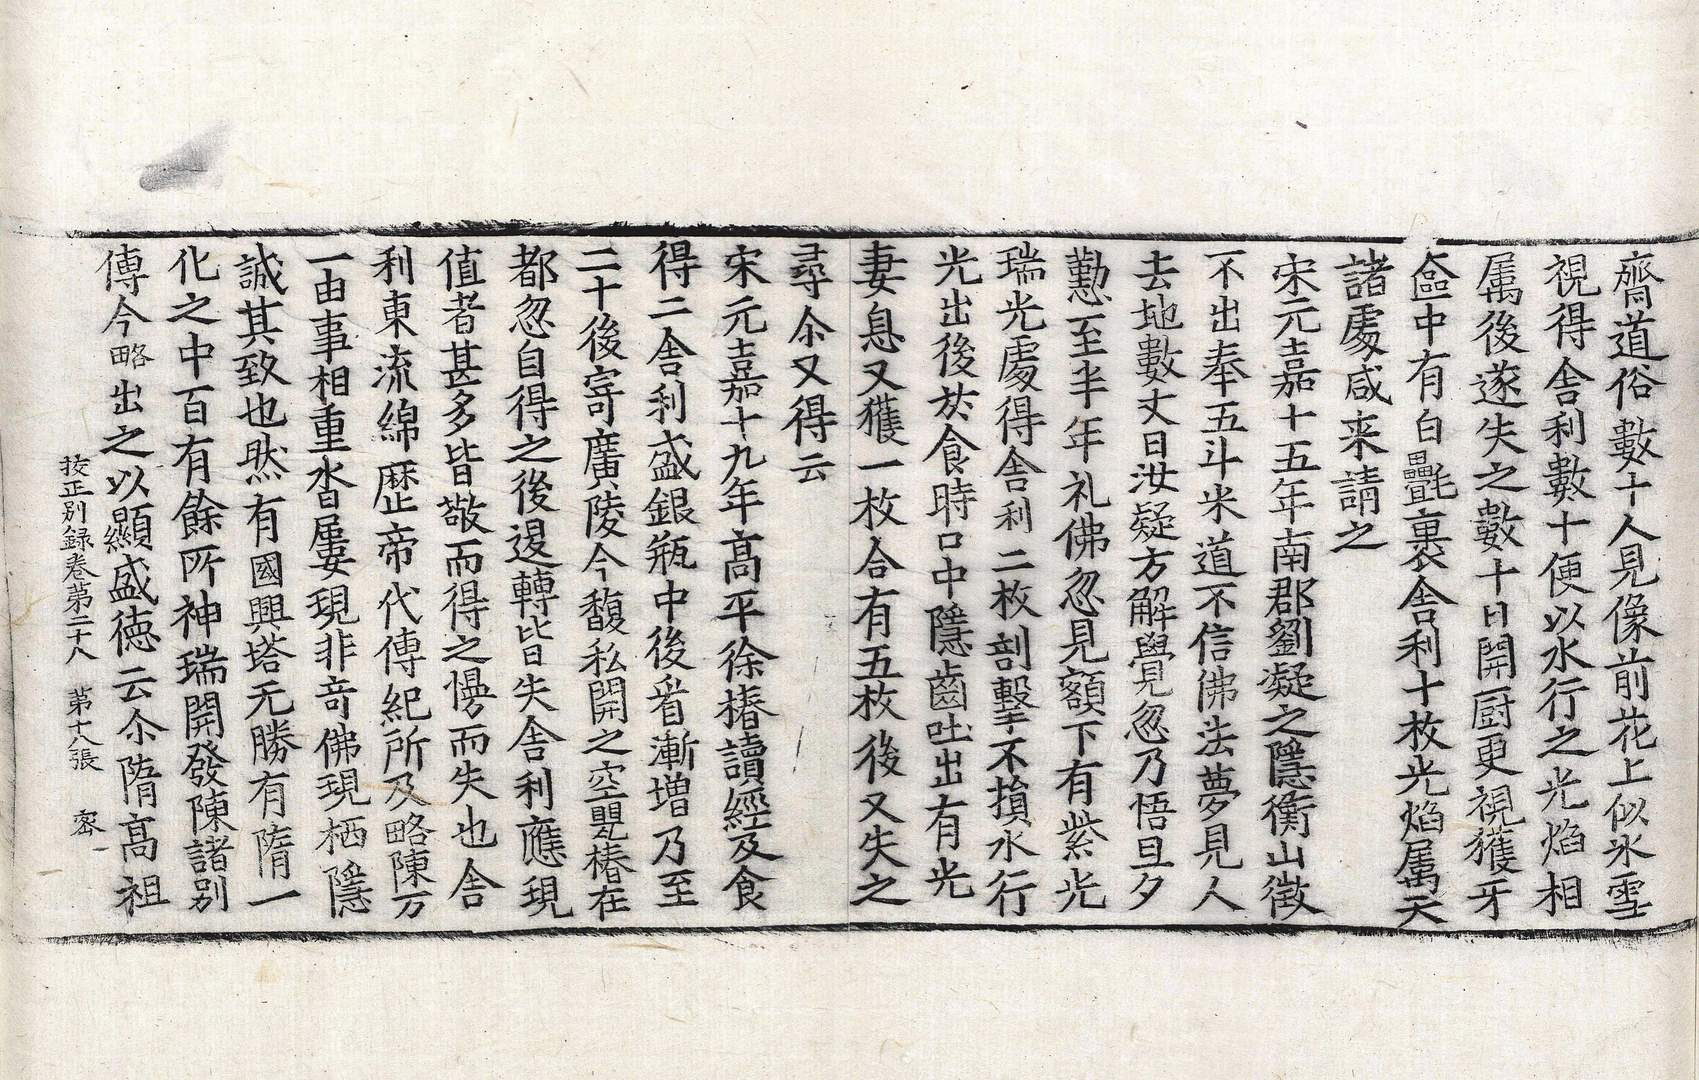 齋道俗數十人見像前花上似氷雪
視得舎利數十便以水行之光焰相
属後遂失之數十日開厨更視獲牙
奩中有白㲲裹舎利十枚光焰属天
諸處咸来請之
宋元嘉十五年南郡劉凝之隱衡山徴
不出奉五斗米道不信佛法夢見人
去地數丈曰汝疑方解覺忽乃悟旦夕
懃至半年礼佛忽見額下有紫光
瑞光處得舎利二枚剖擊不損水行
光出後於食時口中隱齒吐出有光
妻息又獲一枚合有五枚後又失之
尋尒又得云
宋元嘉十九年髙平徐椿讀經及食
得二舎利盛銀瓶中後看漸增乃至
二十後寄廣陵令馥私開之空甖椿在
都忽自得之後退轉皆失舎利應現
值者甚多皆敬而得之慢而失也舎
利東流綿歷帝代傳紀所及略陳万
一由事相重沓屢現非竒佛現栖隱
誠其致也然有國興塔无勝有隋一
化之中百有餘所神瑞開發陳諸别
傳今略出之以顯盛徳云尒隋髙祖
挍正别録卷第二十八　第十八張　宻